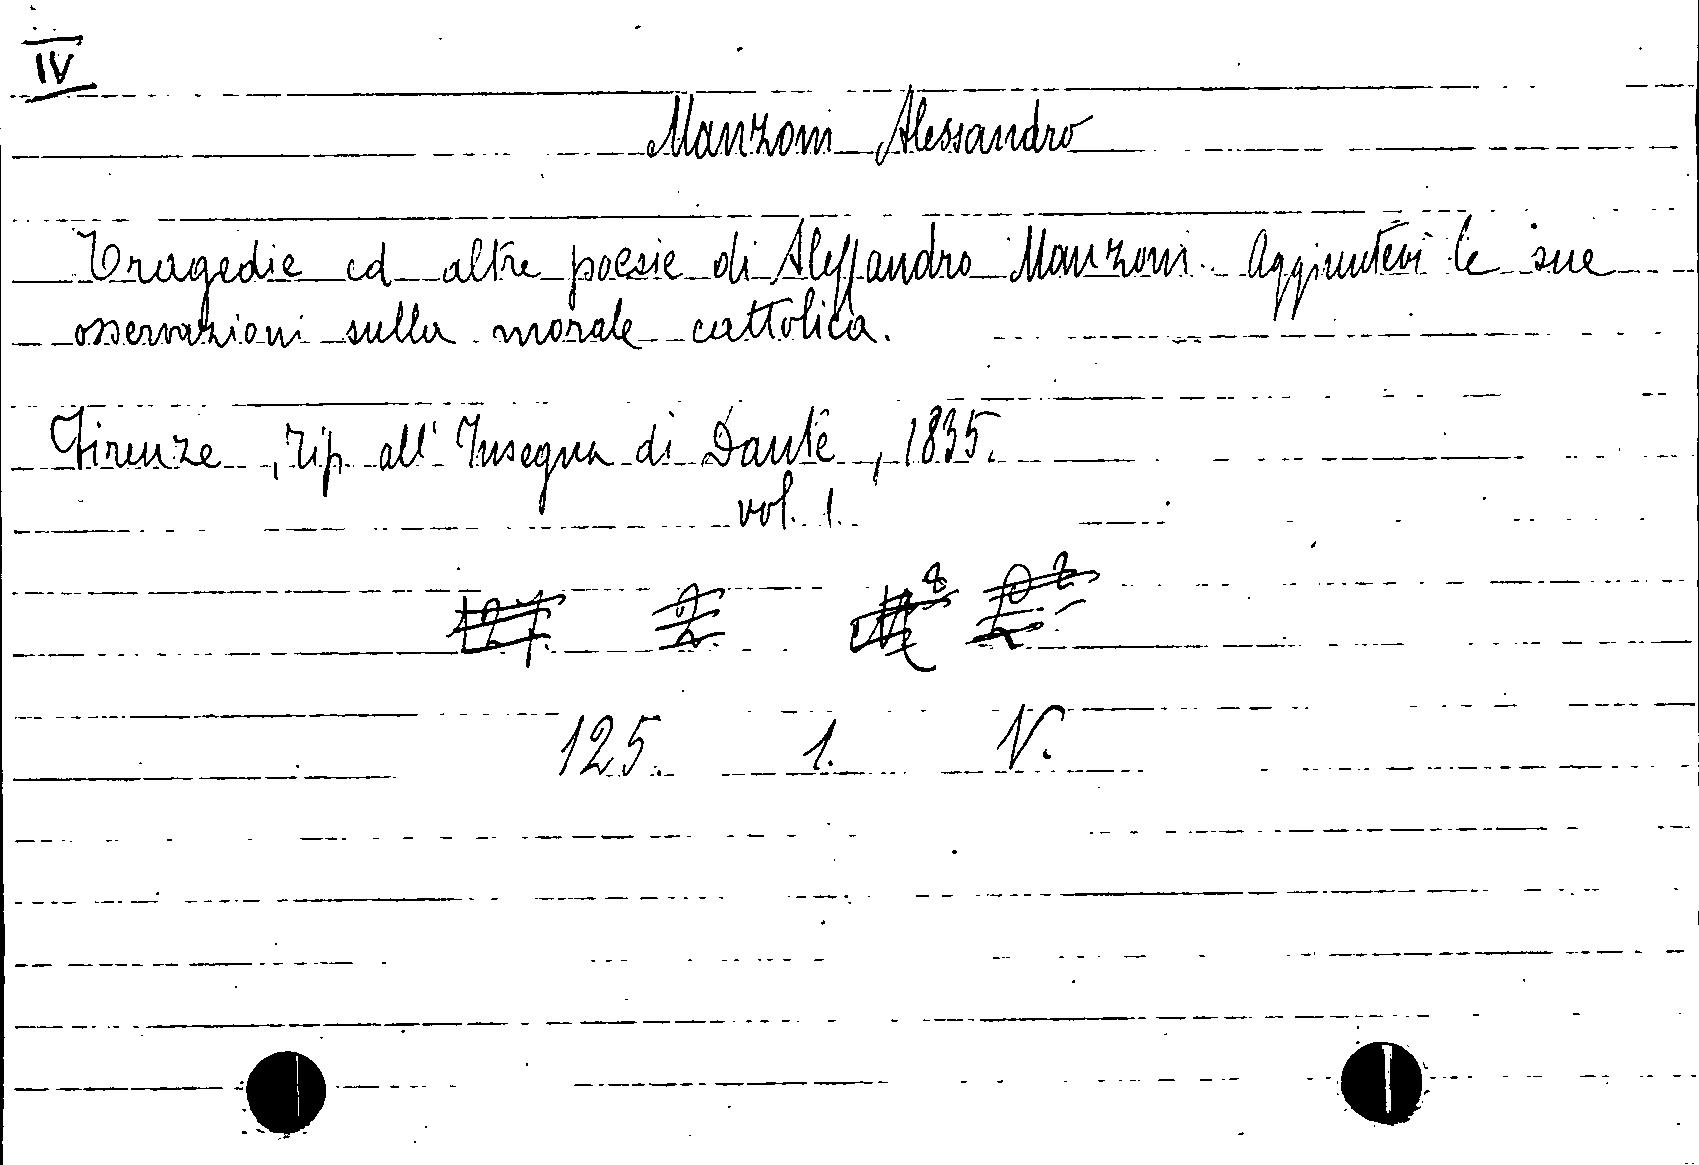 IV
Manzoni Alessandro
Tragedie ed altre poesie di Alessandro Manzoni. Aggiuntevi le sue
osservazioni sulla morale cattolica.
Firenze, Tip. all' Insegna di Dante, 1835.
vol. 1.
127. 2.
125. 1. N.